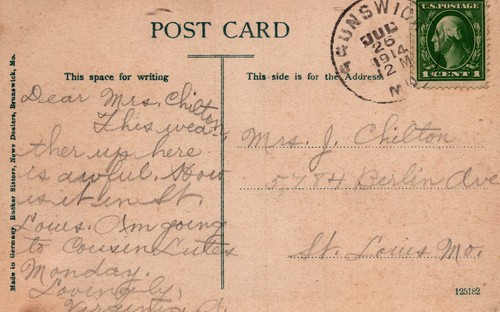 POST CARD
This space for writing
This side is for the Address
BRUNSWICK
26
1914
12 M
MO.
U.S. POSTAGE
1 CENT 1
Dear Mrs. Chilton
This wea-
ther up here
is awful. How
is it in St.
Louis. Am going
to Cousin Lutes
Monday.
Lovingly,
Mrs. J. Chilton
5784 Berlin Ave
St. Louis Mo.
Made in Germany, Rucker Sisters, News Dealers, Brunswick, Mo.
125182